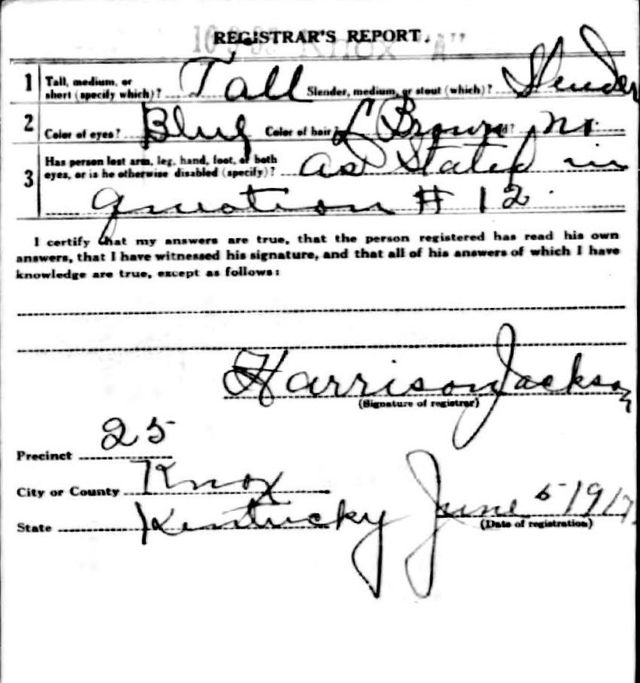 REGISTRAR'S REPORT.
1 Tall, medium, or short (specify which)? Tall Slender, medium, or stout (which)? Slender
2 Color of eyes? Blue Color of hair? L Brown Bald? no
3 Has person lost arm, leg, hand, foot, or both eyes, or is he otherwise disabled (specify)? as Stated in
question # 12.
I certify that my answers are true, that the person registered has read his own
answers, that I have witnessed his signature, and that all of his answers of which I have
knowledge are true, except as follows:
Harrison Jackson
(Signature of registrar)
Precinct 25
City or County Knox
State Kentucky June 5 1917
(Date of registration)